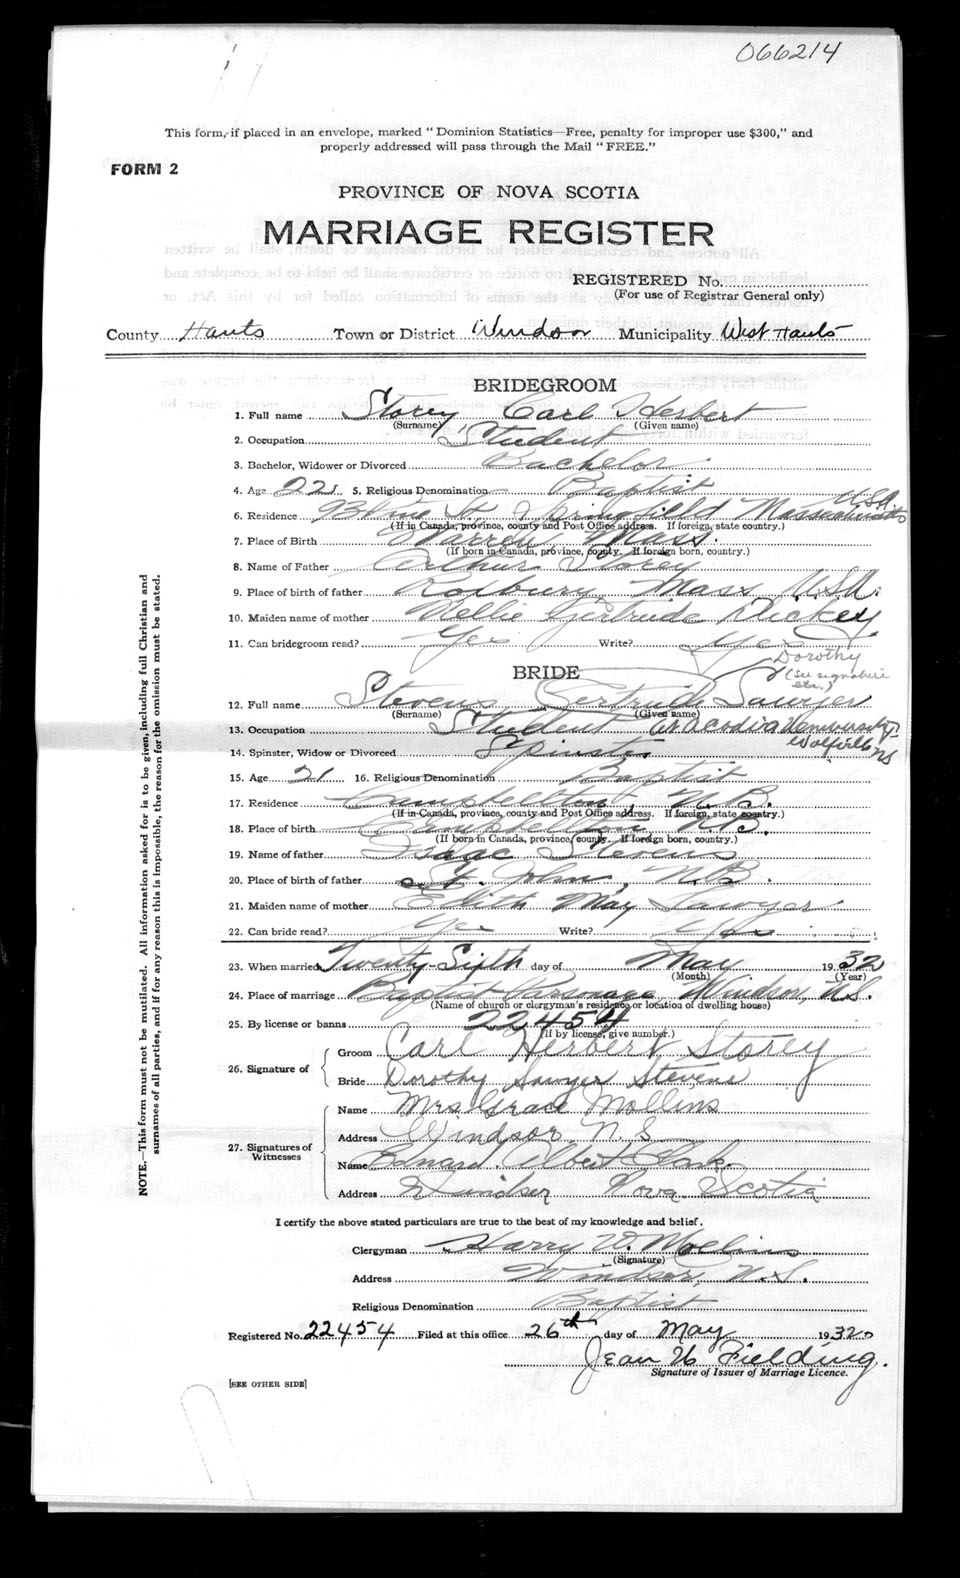 066214
This form, if placed in an envelope, marked "Dominion Statistics—Free, penalty for improper use $300," and
properly addressed will pass through the Mail "FREE."
FORM 2
PROVINCE OF NOVA SCOTIA
MARRIAGE REGISTER
REGISTERED No.
(For use of Registrar General only)
County Hants Town or District Windsor Municipality West Hants
BRIDEGROOM
1. Full name Storey Carl Herbert
(Surname) (Given name)
2. Occupation Student
3. Bachelor, Widower or Divorced Bachelor
4. Age 22 5. Religious Denomination Baptist
6. Residence St Springfield Massachusetts U.S.A.
(If in Canada, province, county and Post Office address. If foreign, state country.)
7. Place of Birth Warren Mass.
(If born in Canada, province, county. If foreign born, country.)
8. Name of Father Arthur Storey
9. Place of birth of father Roxbury Mass U.S.A.
10. Maiden name of mother Nellie Gertrude Dickey
11. Can bridegroom read? Yes Write? Yes
Dorothy
(see signature
etc.)
BRIDE
12. Full name Stevens Gertrude Sawyer
(Surname) (Given name)
13. Occupation Student at Acadia University
Wolfville NS
14. Spinster, Widow or Divorced Spinster
15. Age 21 16. Religious Denomination Baptist
17. Residence Campbellton, N.B.
(If in Canada, province, county and Post Office address. If foreign, state country.)
18. Place of birth Campbellton N.B.
(If born in Canada, province, county. If foreign born, country.)
19. Name of father Isaac Stevens
20. Place of birth of father St. John, N.B.
21. Maiden name of mother Edith May Sawyer
22. Can bride read? Yes Write? Yes
23. When married Twenty-Sixth day of May 1932
(Month) (Year)
24. Place of marriage Baptist Parsonage Windsor, N.S.
(Name of church or clergyman's residence or location of dwelling house)
25. By license or banns 22454
(If by license, give number.)
26. Signature of
Groom Carl Herbert Storey
Bride Dorothy Sawyer Stevens
27. Signatures of Witnesses
Name Mrs Grace Mollins
Address Windsor, N.S.
Name Edward Albert Clark.
Address Windsor Nova Scotia
I certify the above stated particulars are true to the best of my knowledge and belief.
Clergyman Harry W. Mollins
(Signature)
Address Windsor, N.S.
Religious Denomination Baptist
Registered No. 22454 Filed at this office 26th day of May 1932
Jean W Fielding.
Signature of Issuer of Marriage Licence.
[SEE OTHER SIDE]
NOTE.—This form must not be mutilated. All information asked for is to be given, including full Christian and
surnames of all parties, and if for any reason this is impossible, the reason for the omission must be stated.